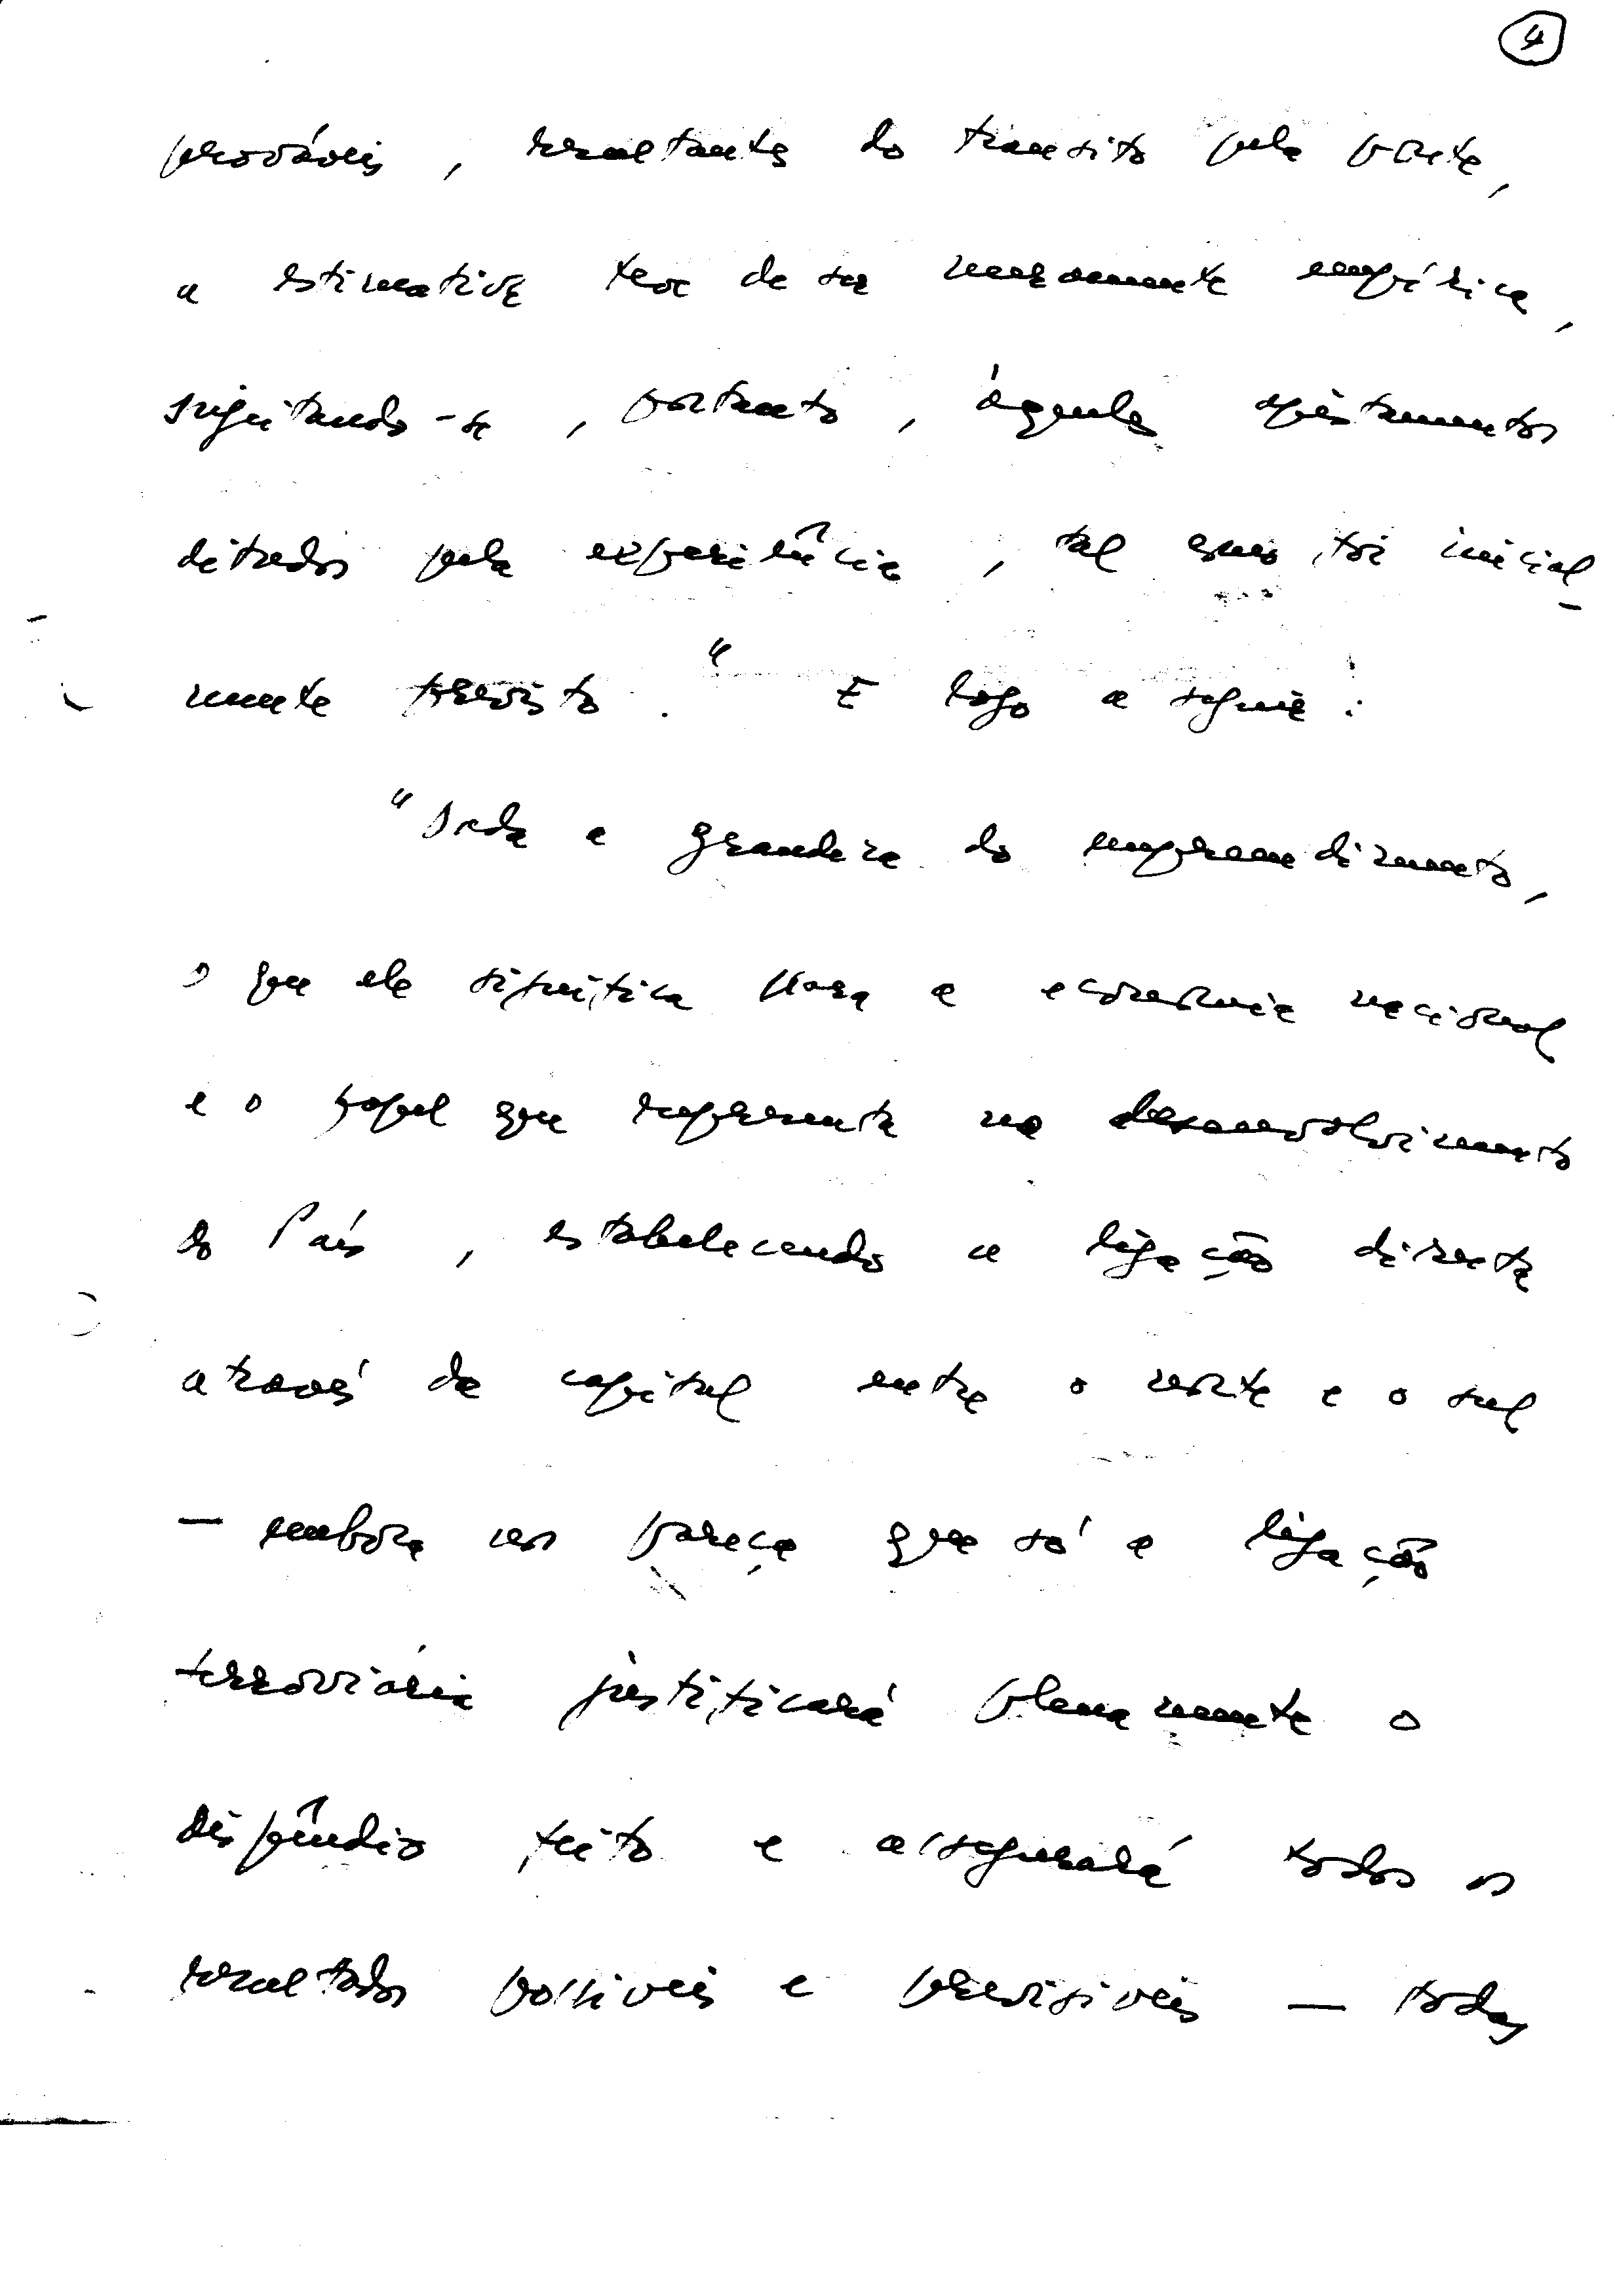 4
prováveis, resultantes do transito pela ponte,
a estimativa teve de ser meramente empírica,
sujeitando-se, portanto, àqueles ajustamentos
ditados pela experiência, tal como foi inicial-
mente previsto." E logo a seguir:
"Dada a grandeza do empreendimento,
o que ele significa para a economia nacional
e o papel que representa no desenvolvimento
do País, estabelecendo a ligação directa
através da capital entre o norte e o sul
— embora nos pareça que só a ligação
ferroviária justificará plenamente o
dispêndio feito e assegurará todos os
resultados possíveis e previsíveis — todas